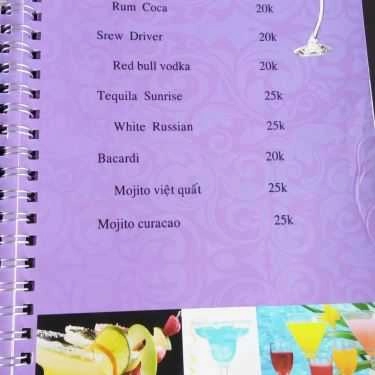 Rum Coca 20k
Srew Driver 20k
Red bull vodka 20k
Tequila Sunrise 25k
White Russian 25k
Bacardi 20k
Mojito việt quất 25k
Mojito curacao 25k